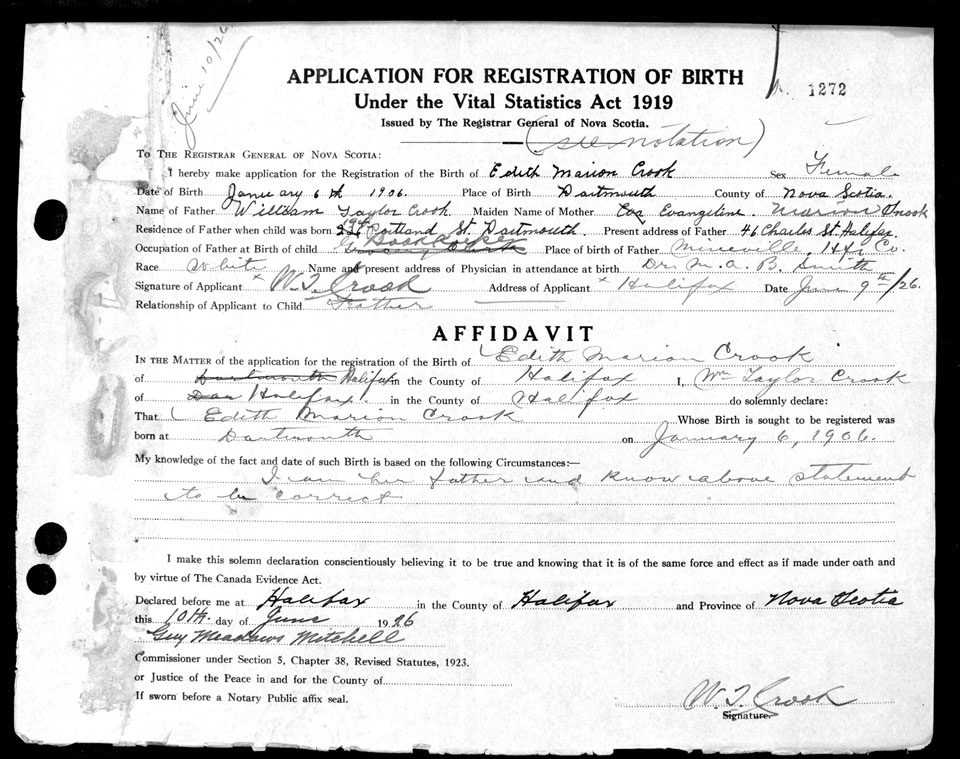 June 10/26
APPLICATION FOR REGISTRATION OF BIRTH
1272
Under the Vital Statistics Act 1919
Issued by The Registrar General of Nova Scotia.
(see notation)
TO THE REGISTRAR GENERAL OF NOVA SCOTIA:
I hereby make application for the Registration of the Birth of Edith Marion Crook Sex Female
Date of Birth January 6th 1906. Place of Birth Dartmouth County of Nova Scotia.
Name of Father William Taylor Crook Maiden Name of Mother Eva Evangeline Snook
Residence of Father when child was born Portland St. Dartmouth. Present address of Father 46 Charles St. Halifax.
Occupation of Father at Birth of child Bookkeeper Place of birth of Father Mineville, Hfx Co.
Race White Name and present address of Physician in attendance at birth Dr. M. A. B. Smith
Signature of Applicant x W. T. Crook Address of Applicant x Halifax Date June 9th/26.
Relationship of Applicant to Child Father
AFFIDAVIT
IN THE MATTER of the application for the registration of the Birth of Edith Marion Crook
of Dartmouth Halifax in the County of Halifax I, Wm Taylor Crook
of Dar Halifax. in the County of Halifax do solemnly declare:
That Edith Marion Crook Whose Birth is sought to be registered was
born at Dartmouth on January 6, 1906.
My knowledge of the fact and date of such Birth is based on the following Circumstances:—
I am her father and know above statement
to be correct
I make this solemn declaration conscientiously believing it to be true and knowing that it is of the same force and effect as if made under oath and
by virtue of The Canada Evidence Act.
Declared before me at Halifax in the County of Halifax and Province of Nova Scotia
this 10th. day of June 1926
Guy Meadows Mitchell
Commissioner under Section 5, Chapter 38, Revised Statutes, 1923.
or Justice of the Peace in and for the County of
If sworn before a Notary Public affix seal.
W. T. Crook
Signature.